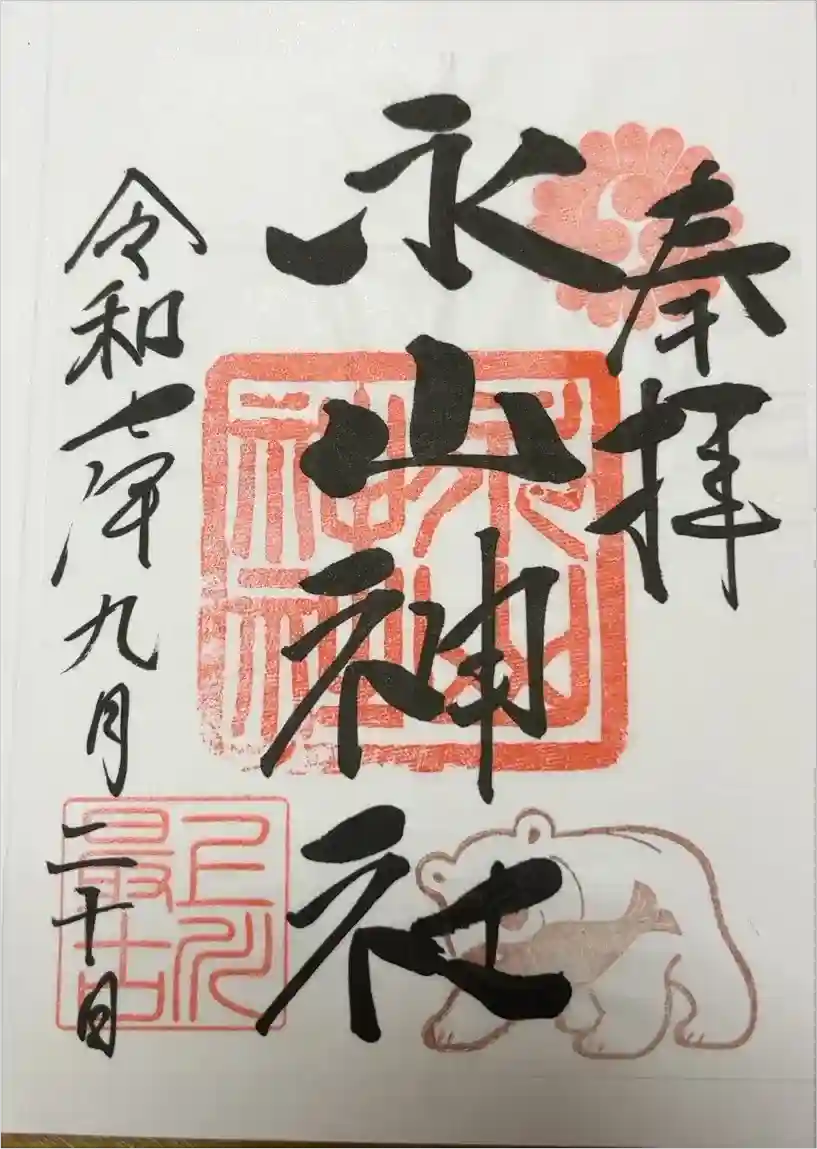 奉拝
永山神社
永山
神社
令和七年九月二十日
上川
最古